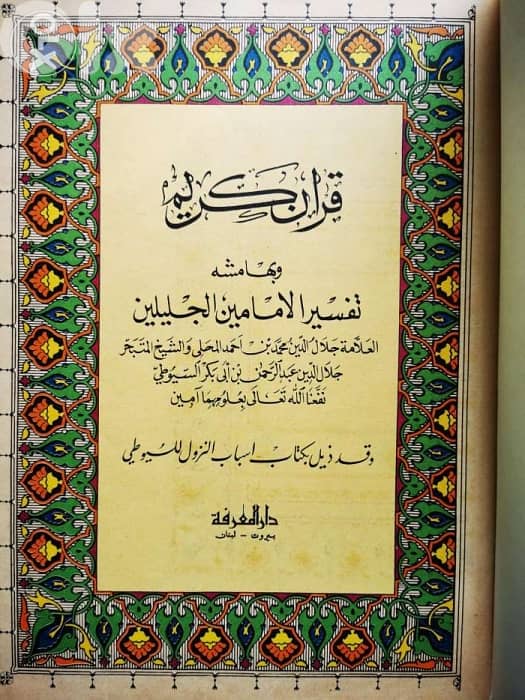 قرآن كريم
وبهامشه
تفسير الامامين الجليلين
العلامة جلال الدين محمد بن احمد المحلى والشيخ المتبحر
جلال الدين عبد الرحمن بن أبى بكر السيوطي
نفعنا الله تعالى بعلومهما آمين
وقد ذيل بكتاب اسباب النزول للسيوطي
دار المعرفة
بيروت - لبنان